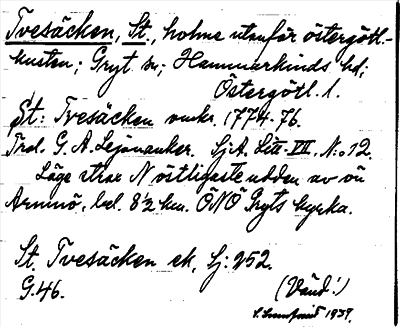 Tvesäcken, St., holme utanför östergötl.-
kusten; Gryt sn; Hammarkinds hd;
Östergötl. l.
St: Tvesäcken omkr. 1774-76.
Trol. G. A. Lejonanker. Sj.A. Litt. VII. N:o 12.
Läge strax N östligaste udden av ön
Armnö, bel. 8½ km. ÖNÖ Gryts kyrka.
St. Tvesäcken ek, Sj: 252.
G. 46. (Vänd!)
1939.